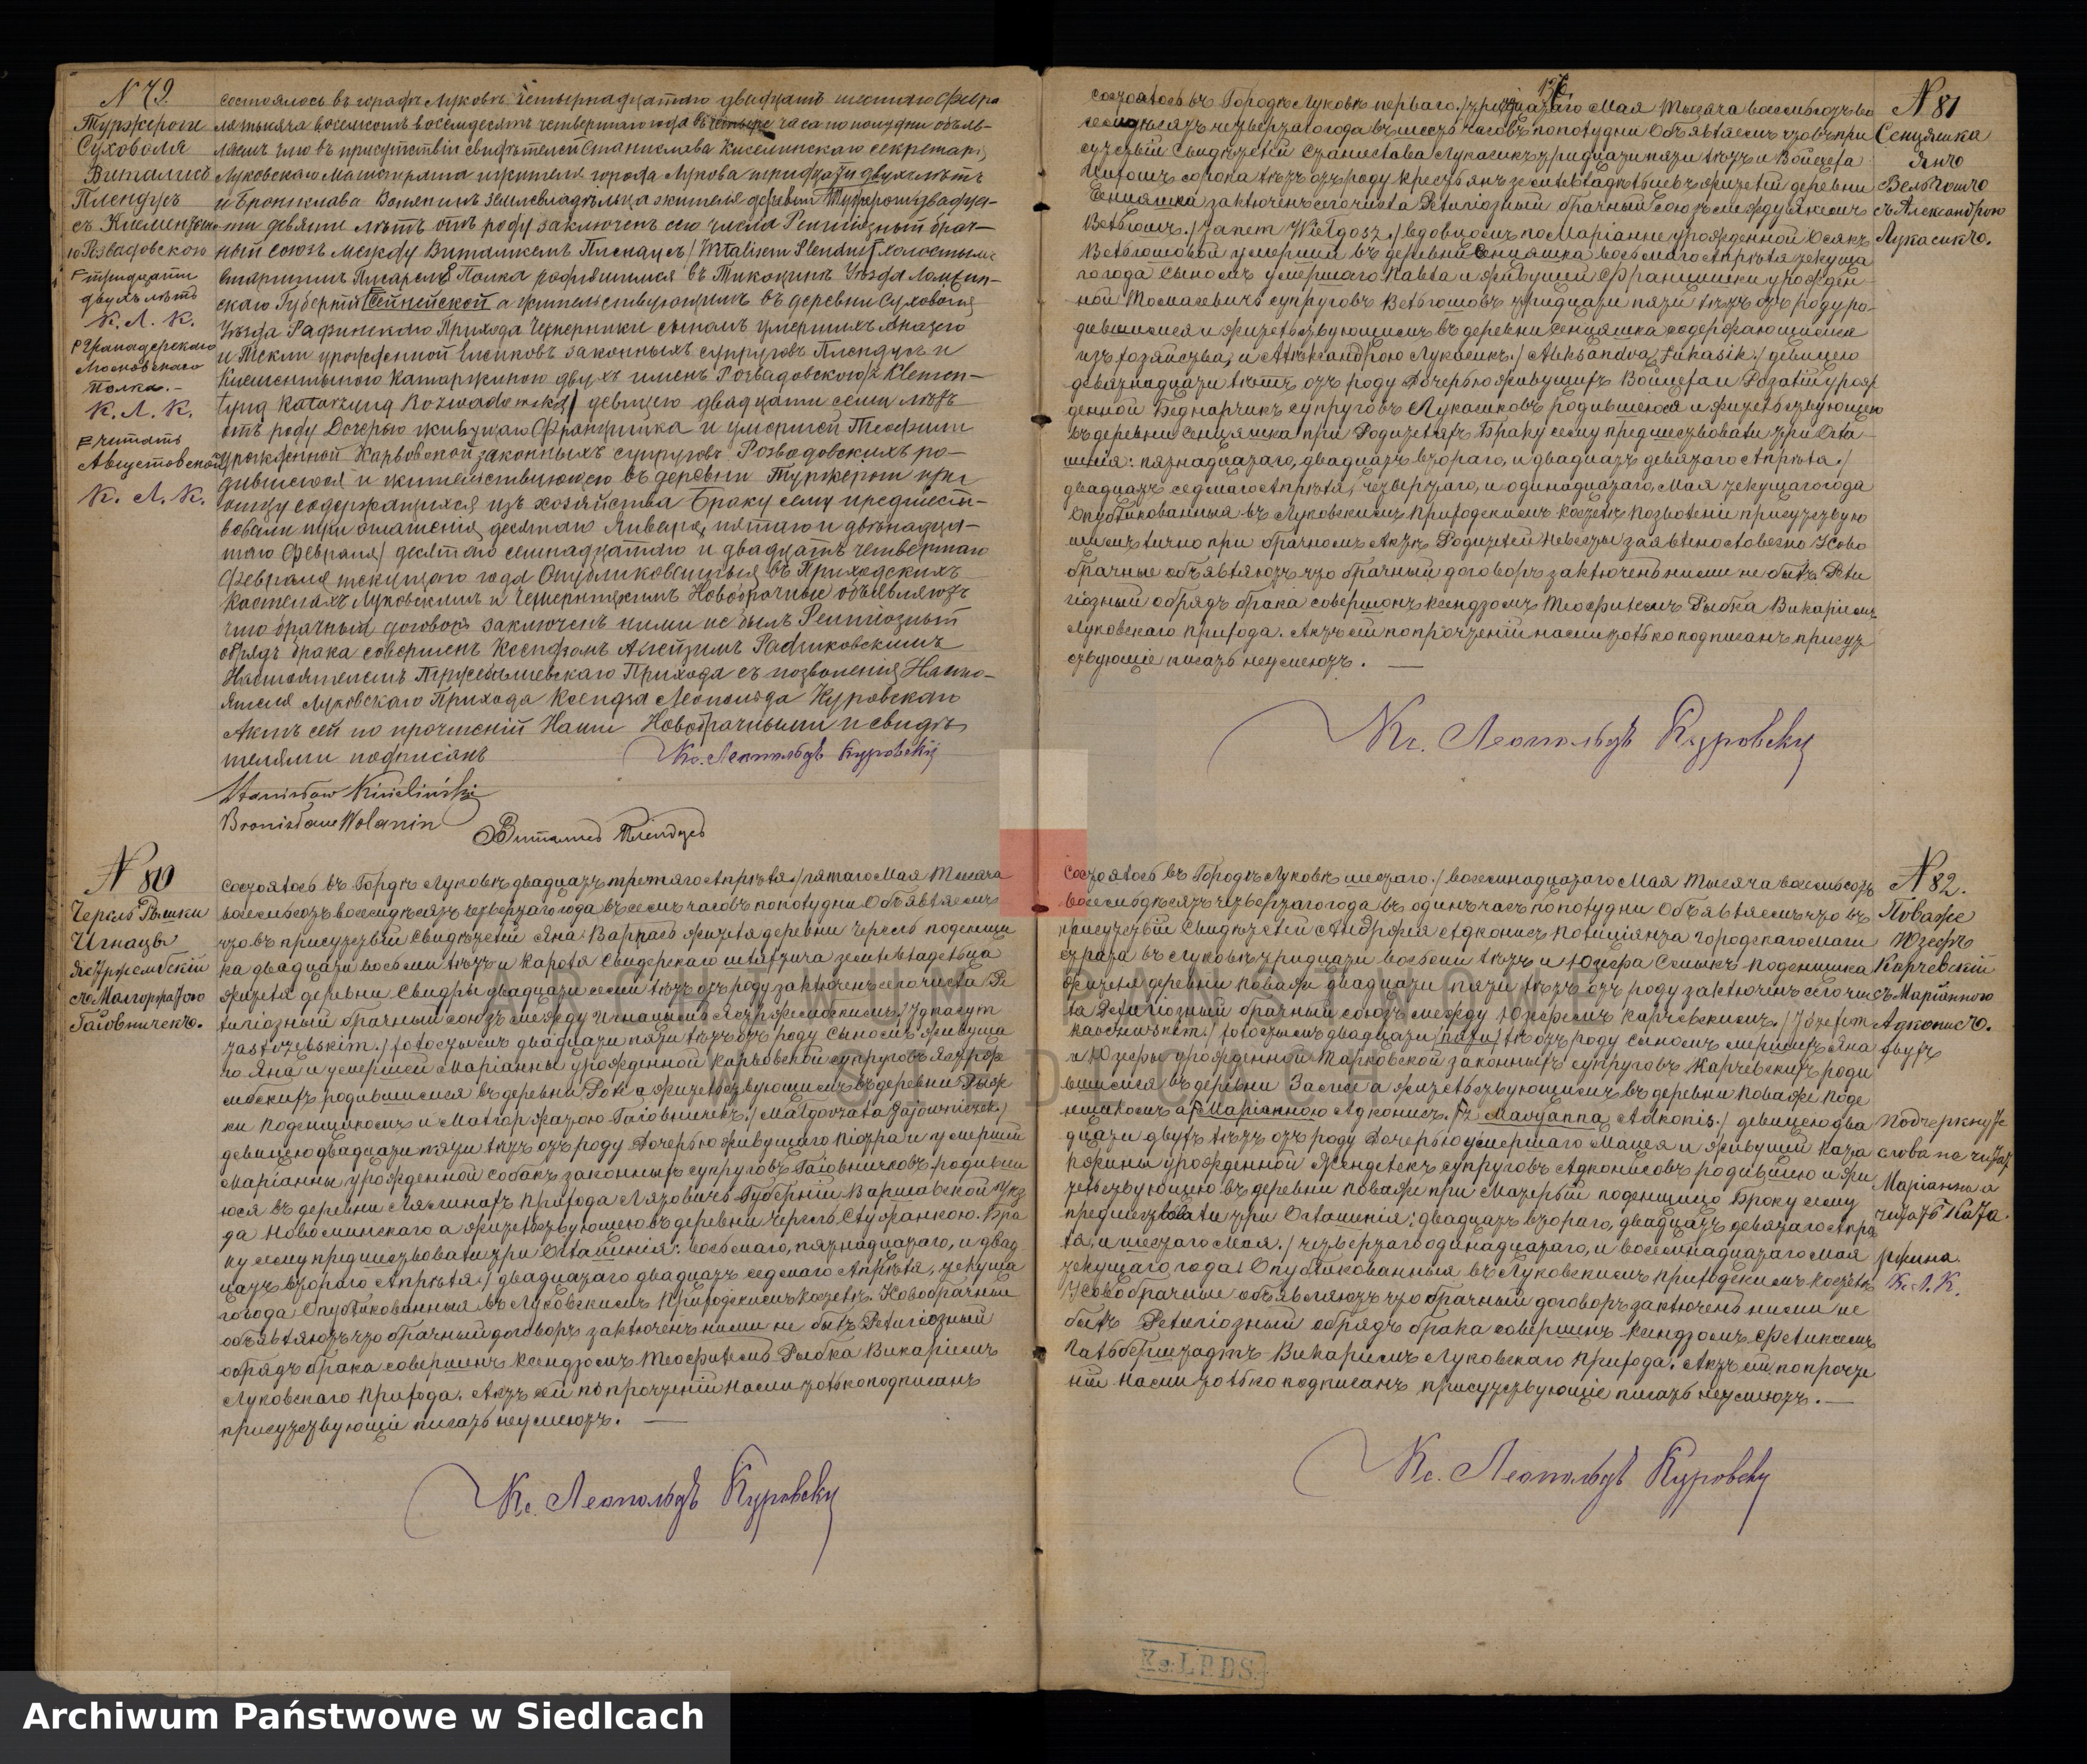 N 79.
Туржероги
Суховоля
Виталисъ
Плендусъ
съ Клементы-
ною Розвадовскою
тридцати
двухъ лѣтъ
К. Л. К.
Гранадерскаго
Московскаго
Полка.-
К. Л. К.
читать
Августовской
К. Л. К.
состоялось въ городѣ Луковѣ четырнадцатаго двадцать шестаго Февра
ля тысяча восемьсотъ восемдесять четвертаго года въ четыре часа по полудни объяв-
ляемъ что въ присутствіи свидѣтелей Станислава Киселинскаго секретаря
Луковскаго Магистрата жителя города Лукова тридцати двухъ лѣтъ
и Бронислава Волянинъ землевладѣльца жителя деревни Туржероги двадца-
ти девяти лѣтъ отъ роду заключенъ сего числа Религіозный брач-
ный союзъ между Виталисемъ Плендусъ / Witalisem Plendus / холостымъ
старшимъ Писаремъ Полка родившимся въ Тикоцинѣ Уѣзда Ломжин-
скаго Губерніи Сейнейской а жительствующимъ въ деревни Суховоля
Уѣзда Радинскаго Прихода Чемерники сыномъ умершихъ
и Теклі урожденной законныхъ супруговъ Плендусъ и
Клементыною Катаржиною двухъ именъ Розвадовскою / Klemen-
tyną Katarzyną Rozwadowską / девицею двадцати семи лѣтъ
отъ роду Дочерью живущаго Францишка и умершей Теофили
урожденной Карвовской законныхъ супруговъ Розвадовскихъ ро-
дившеюся и жительствующею въ деревни Туржероги при
отцу содержащеюся изъ хозяйства Браку сему предшест-
вовали три оглашенія десятаго Января, пятаго и двѣнадца-
таго Февраля / десятаго семнадцатаго и двадцать четвертаго
Февраля текущаго года Опубликованныя въ Приходскихъ
Костелахъ Луковскимъ и Чемерницкимъ Новобрачные объявляютъ
что брачный договоръ заключенъ ними не былъ Религіозный
обрядъ брака совершенъ Ксендзомъ Радиковскимъ
Настоятелемъ Тржебешевскаго Прихода съ позволенія Насто-
ятеля Луковскаго Прихода Ксендза Леопольда Куровскаго
Актъ сей по прочтеніи Нами Новобрачными и свидѣ-
телями подписанъ
Кс. Леопольдъ Куровскій
Stanisław Kisieliński
Bronisław Wolanin
Виталисъ Плендусъ
N 80
Чересль Рыжки
Игнацы
Ястржембскій
съ Малгоржатою
Гаіовничекъ.
состоялось въ Городѣ Луковѣ двадцать третяго Апрѣля / пятаго Мая Тысяча
восемьсотъ восемдѣсятъ четвертаго года въ семь часовъ пополудни Объявляемъ
что въ присутствіи Свидѣтелей Яна Варпасъ жителя деревни Чересль поденщи
ка двадцати восьми лѣтъ и Кароля Свидерскаго шляхтича землевладельца
жителя деревни Свидры двадцати семи лѣтъ отъ роду заключенъ сего числа Ре
лигіозный брачный союзъ между Игнацымъ Ястржембскимъ / Ignacym
Jastrzębskim. / холостымъ двадцати пяти лѣтъ отъ роду Сыномъ живуща
го Яна и умершей Маріанны урожденной Карвовской супруговъ Ястрже
мбскихъ родившимся въ деревни Роле а жительствующимъ въ деревни Рыж
ки поденщикомъ и Малгоржатою Гаіовничекъ. / Małgorzata Gajowniczek. /
девицею двадцати пяти лѣтъ отъ роду Дочерью живущаго Піотра и умершей
Маріанны урожденной Собакъ законныхъ супруговъ Гаіовничковъ родивше
юся въ деревни Прихода Лятовичъ Губерніи Варшавской Уѣз
да Новоминскаго а жительствующею въ деревни Чересль Служанкою. Бра
ку сему предшествовали три Оглашенія: восьмаго, пятнадцатаго, и двад
цать втораго Апрѣля / двадцатаго двадцать седмаго Апрѣля, текуща
го года Опубликованныя въ Луковскимъ Приходскимъ Костелѣ. Новобрачные
объявляютъ что брачный договоръ заключенъ ними не былъ Религіозный
обрядъ брака совершенъ Ксендзомъ Теофилемъ Рыбка Викаріемъ
Луковскаго Прихода. Актъ сей по прочтеніи Нами только подписанъ
присутствующіе писать неумеютъ. —
Кс. Леопольдъ Куровску
N 81
Сенцяшка
Янъ
Вельгошъ
съ Александрою
Лукасикъ.
состоялось въ Городѣ Луковѣ перваго. / тринадцатаго Мая Тысяча восемьсотъ во
семдѣсятъ четвертаго года въ шесть часовъ пополудни Объявляемъ что въ при
сутствіи Свидѣтелей Станислава Лукасикъ тридцати пяти лѣтъ и Войцеха
сорока лѣтъ отъ роду крестьянъ землевладѣльцевъ жителей деревни
Сенцяшка заключенъ сего числа Религіозный брачный Союзъ между Яномъ
Вельгошъ. / Janem Wielgosz. / вдовцомъ по Маріанне урожденной Осякъ
Вельгошовой умершей въ деревни Сенцяшка восьмаго Апрѣля текуща
го года Сыномъ умершаго Павла и живущей Францишки урожден-
ной Томасевичъ супруговъ Вельгошовъ тридцати пяти лѣтъ отъ роду ро-
дившимся и жительствующимъ въ деревни Сенцяшка содержающимся
изъ хозяйства, и Александрою Лукасикъ. / Aleksandra Łukasik. / девицею
девятнадцати лѣтъ отъ роду Дочерью живущихъ Войцеха и Розаліи урож
денной Беднарчикъ супруговъ Лукасиковъ родившеюся и жительствующею
въ деревни Сенцяшка при Родителяхъ Браку сему предшествовали три Огла
шенія: пятнадцатаго, двадцать втораго, и двадцать девятаго Апрѣля. /
двадцать седмаго Апрѣля, четвертаго, и одинадцатаго, Мая текущаго года
Опубликованныя въ Луковскимъ Приходскимъ Костелѣ Позволени присутствую
щимъ лично при брачномъ Актѣ Родителей Невесты заявлено словесно Ново
брачные объявляютъ что брачный договоръ заключенъ ними не былъ. Рели
гіозный обрядъ брака совершонъ Ксендзомъ Теофилемъ Рыбка Викаріемъ
Луковскаго Прихода. Актъ сей по прочтеніи нами только подписанъ присут
ствующіе писать неумеютъ. —
Кс. Леопольдъ Куровску
N 82.
Поважe
Юзефъ
Карчевскій
съ Маріанною
Адконисъ.
двухъ
Подчеркнуте
слова не читать
Маріанны а
читать Ката
ржина
Кс. Л. К.
состоялось въ Городѣ Луковѣ шестаго. / восемнадцатаго Мая Тысяча восемьсотъ
восемьдѣсятъ четвертаго года въ одинъ часъ пополудни Объявляемъ что въ
присутствіи Свидѣтелей Андржея Адконисъ Полиціянта Городскаго Маги
страта въ Луковѣ тридцати восьми лѣтъ и Юзефа Семыкъ поденщика
жителя деревни Поваже двадцати пяти лѣтъ отъ роду заключенъ сего чис
ла Религіозный брачный союзъ между Юзефемъ Карчевскимъ. / Józefem
Karczewskim. / холостымъ двадцати пяти лѣтъ отъ роду сыномъ умершихъ Яна
и Юзефы урожденной Марковской законныхъ супруговъ Карчевскихъ роди
вшимся въ деревни а жительствующимъ въ деревни Поваже поде
нщикомъ а Маріанною Адконисъ. / z Maryanną Adkonis. / девицею два
дцати двухъ лѣтъ отъ роду Дочерью умершаго Мацея и живущей Ката
ржины урожденной супруговъ Адконисовъ родившею и жи
тельствующею въ деревни Поваже при Матерьи поденщицею Браку сему
предшествовали три Оглашенія: двадцать втораго, двадцать девятаго Апрѣ
ля, и шестаго Мая. / четвертаго одинадцатаго, и восемнадцатаго Мая
текущаго года: Опубликованныя въ Луковскимъ Приходскимъ Костелѣ
Новобрачные объявляютъ что брачный договоръ заключенъ ними не
былъ Религіозный обрядъ брака совершенъ Ксендзомъ Феликсемъ
Викаріемъ Луковскаго Прихода. Актъ сей по прочте
ніи Нами только подписанъ присутствующіе писать неумеютъ. —
Кс. Леопольдъ Куровску
Ks: L.P.D.S.
ARCHIWUM PAŃSTWOWE
W SIEDLCACH
Archiwum Państwowe w Siedlcach